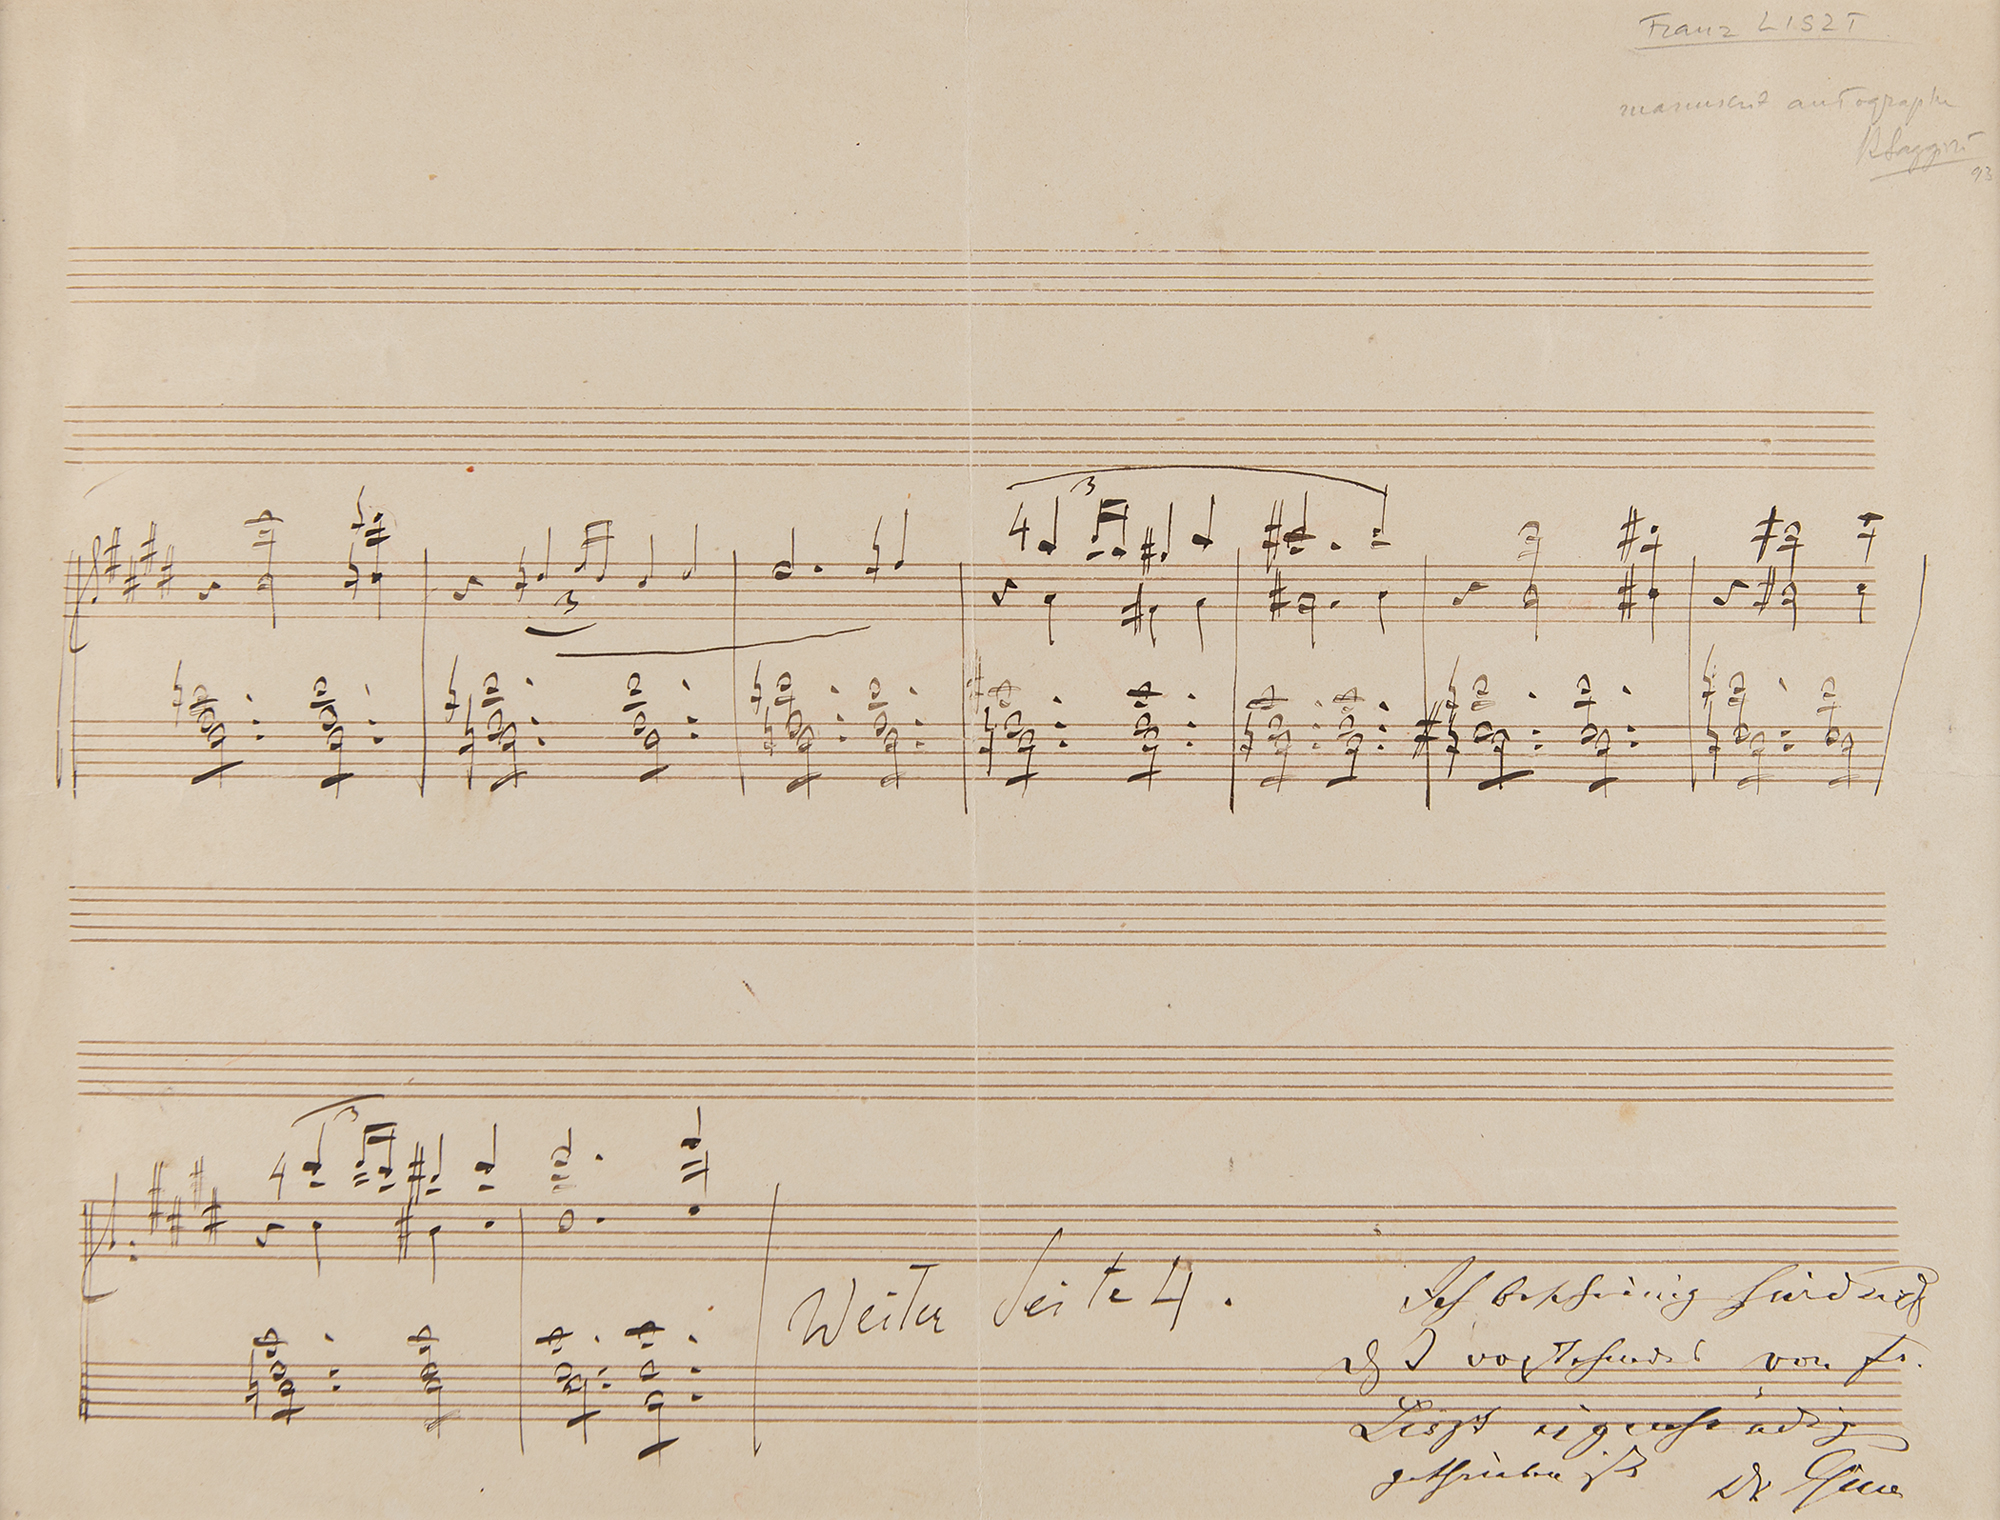 Franz LISZT
manuscrit autographe
93
3
4 3
3
4
Weiter Seite 4.
Ich bescheinig hierdurch
vorstehendes von Fr.
Liszt eigenhändig
geschrieben ist Dr